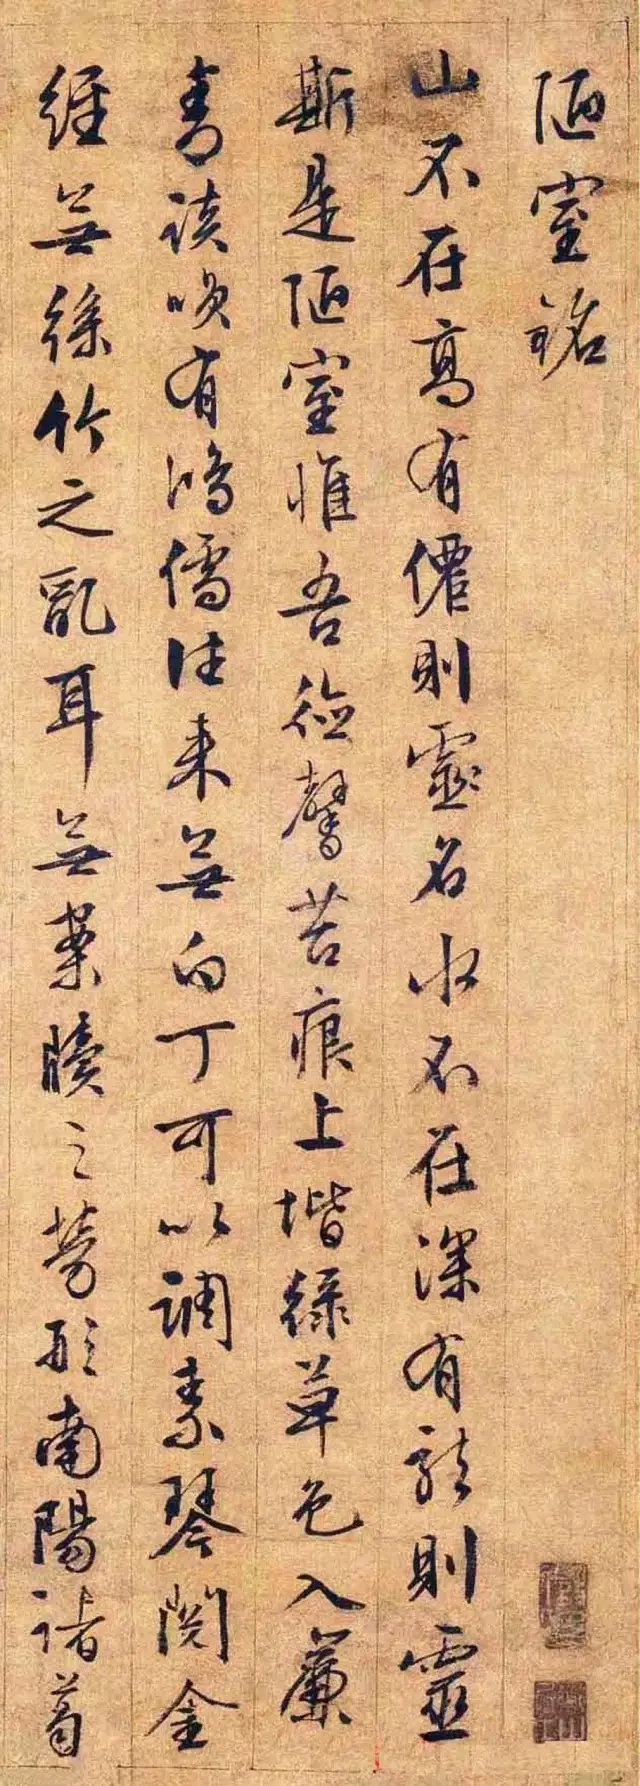 陋室銘
山不在高有僊則靈名水不在深有龍則靈
斯是陋室惟吾德馨苔痕上堦綠草色入簾
青談咲有鴻儒往来無白丁可以調素琴閱金
經無絲竹之亂耳無案牘之勞形南陽諸葛